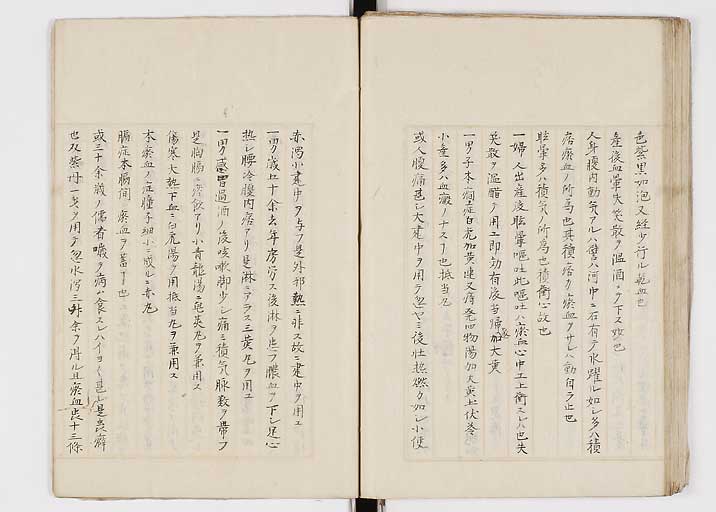 色紫黒如泡又経少行ル乾血也
産後血暈失笑散ヲ温酒ニテ下ス妙也
人身腹内動気アルハ譬ハ河中ニ石有テ水躍ル如シ多ハ積
痞瘀血ノ所為也其積痞力瘀血ヲサレハ動自ラ止也
眩暈多ハ積気ノ所為也積衝心故也
一婦人出産後眩暈嘔吐此嘔吐ハ瘀血心中エ上衝スレハ也失
笑散ヲ温醋テ用エ即効有後当帰加大黄
一男子本癇症白虎加黄連又落発四物湯加大黄上伏苓
小童多ハ血癥ノナス所也抵当丸
或人腹痛甚シ大建中ヲ用テ忽ヤミ後壮熱燃カ如シ小便
赤濁小建中ヲ与フ是外邪熱ニ非ス故ニ建中ヲ用エ
一男歳七十余去年房労ス後淋ヲ患ヲ膿血ヲ下シ足心
熱シ腰冷腹内痞アリ是淋ニアラス三黄丸ヲ用エ
一男感冒過酒ノ後咳嗽脚少シ痛ミ積気脉数ヲ帯フ
是胸膈ニ痰飲アリ小青龍湯ニ皂莢丸ヲ兼用ス
傷寒大熱下血ニ白虎湯ヲ用抵当丸ヲ兼用ス
本瘀血ノ症瞳子細小ニ成ルニ赤丸
膈症本膈間ニ瘀血ヲ蓄テ也
或三十余歳ノ儒者嘰ヲ病ハ食スレハイヨイヨ甚シ是長癖
也又紫丹一匁ヲ用テ忽水瀉三升余ヲ得ル且瘀血長十三條